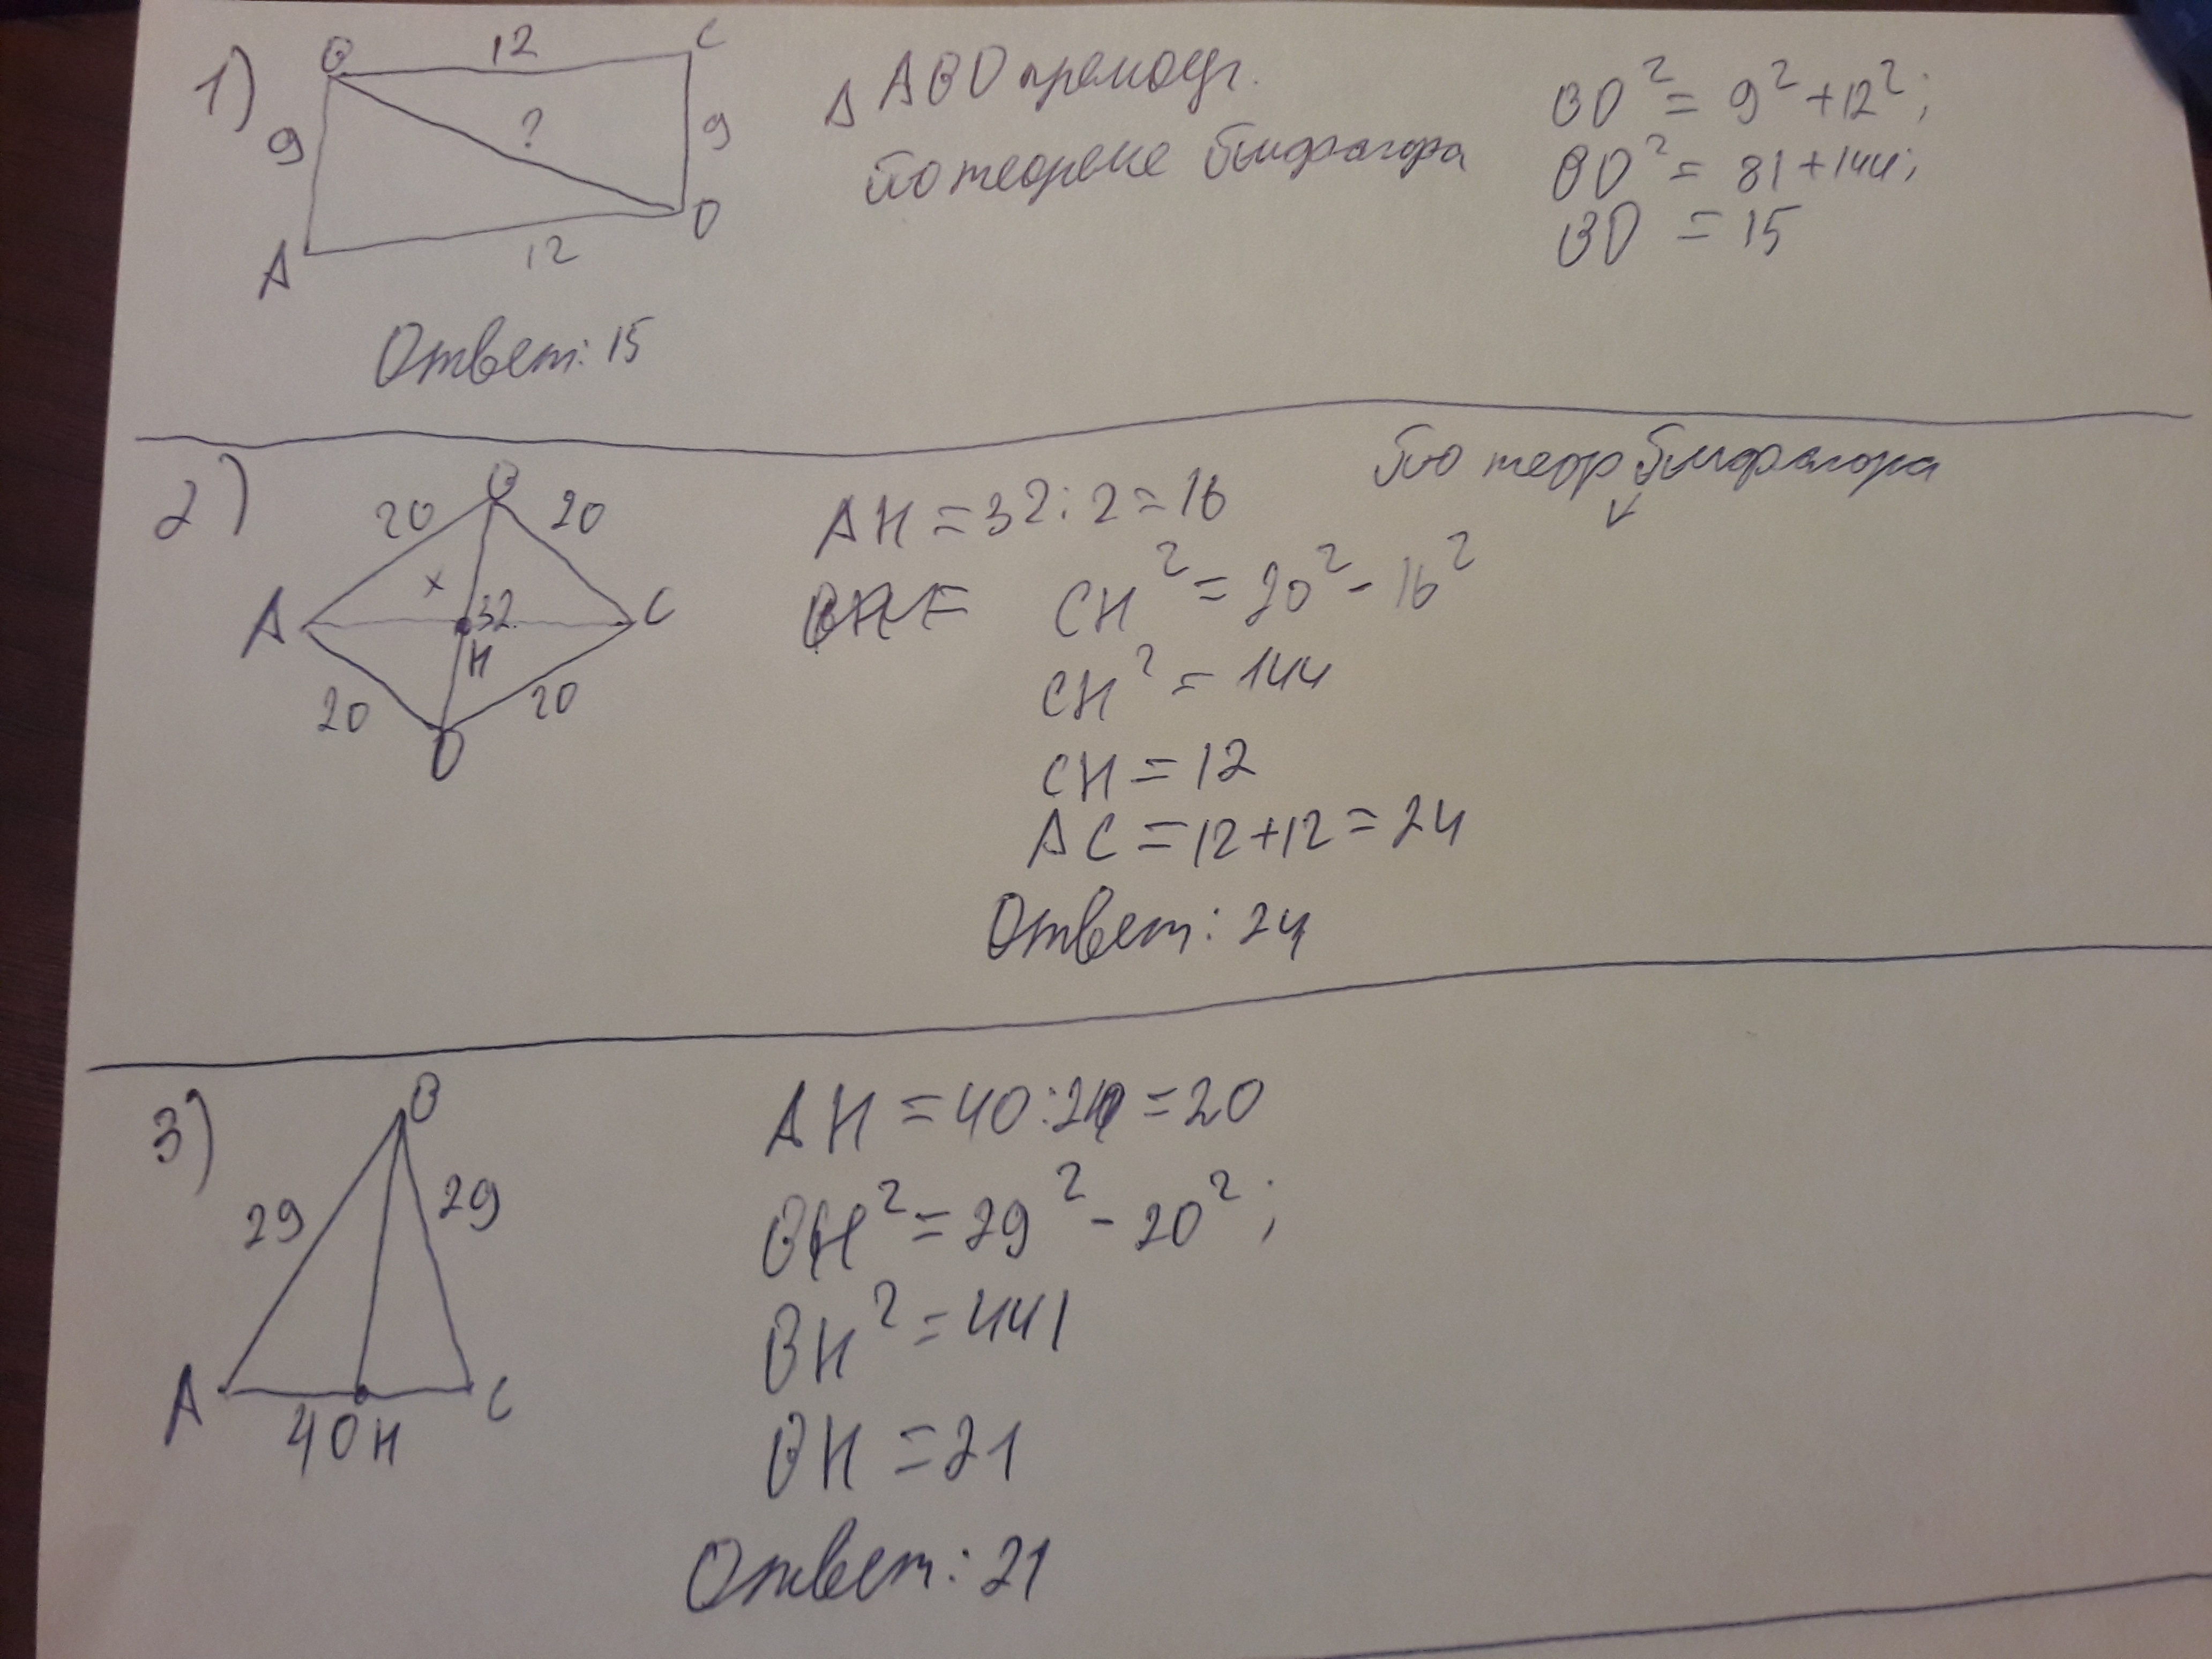 1)
В 12 С
9 ? 9
А 12 D
Δ ABD прямоуг.
По теореме Пифагора
BD² = 9² + 12²;
BD² = 81 + 144;
BD = 15
Ответ: 15
2)
В
20 20
А х 32 С
Н
20 20
D
AH = 32 : 2 = 16
По теор Пифагора
CH² = 20² - 16²
CH² = 144
CH = 12
AC = 12 + 12 = 24
Ответ: 24
3)
В
29 29
А С
40 Н
AH = 40 : 2 = 20
BH² = 29² - 20²;
BH² = 441
BH = 21
Ответ: 21